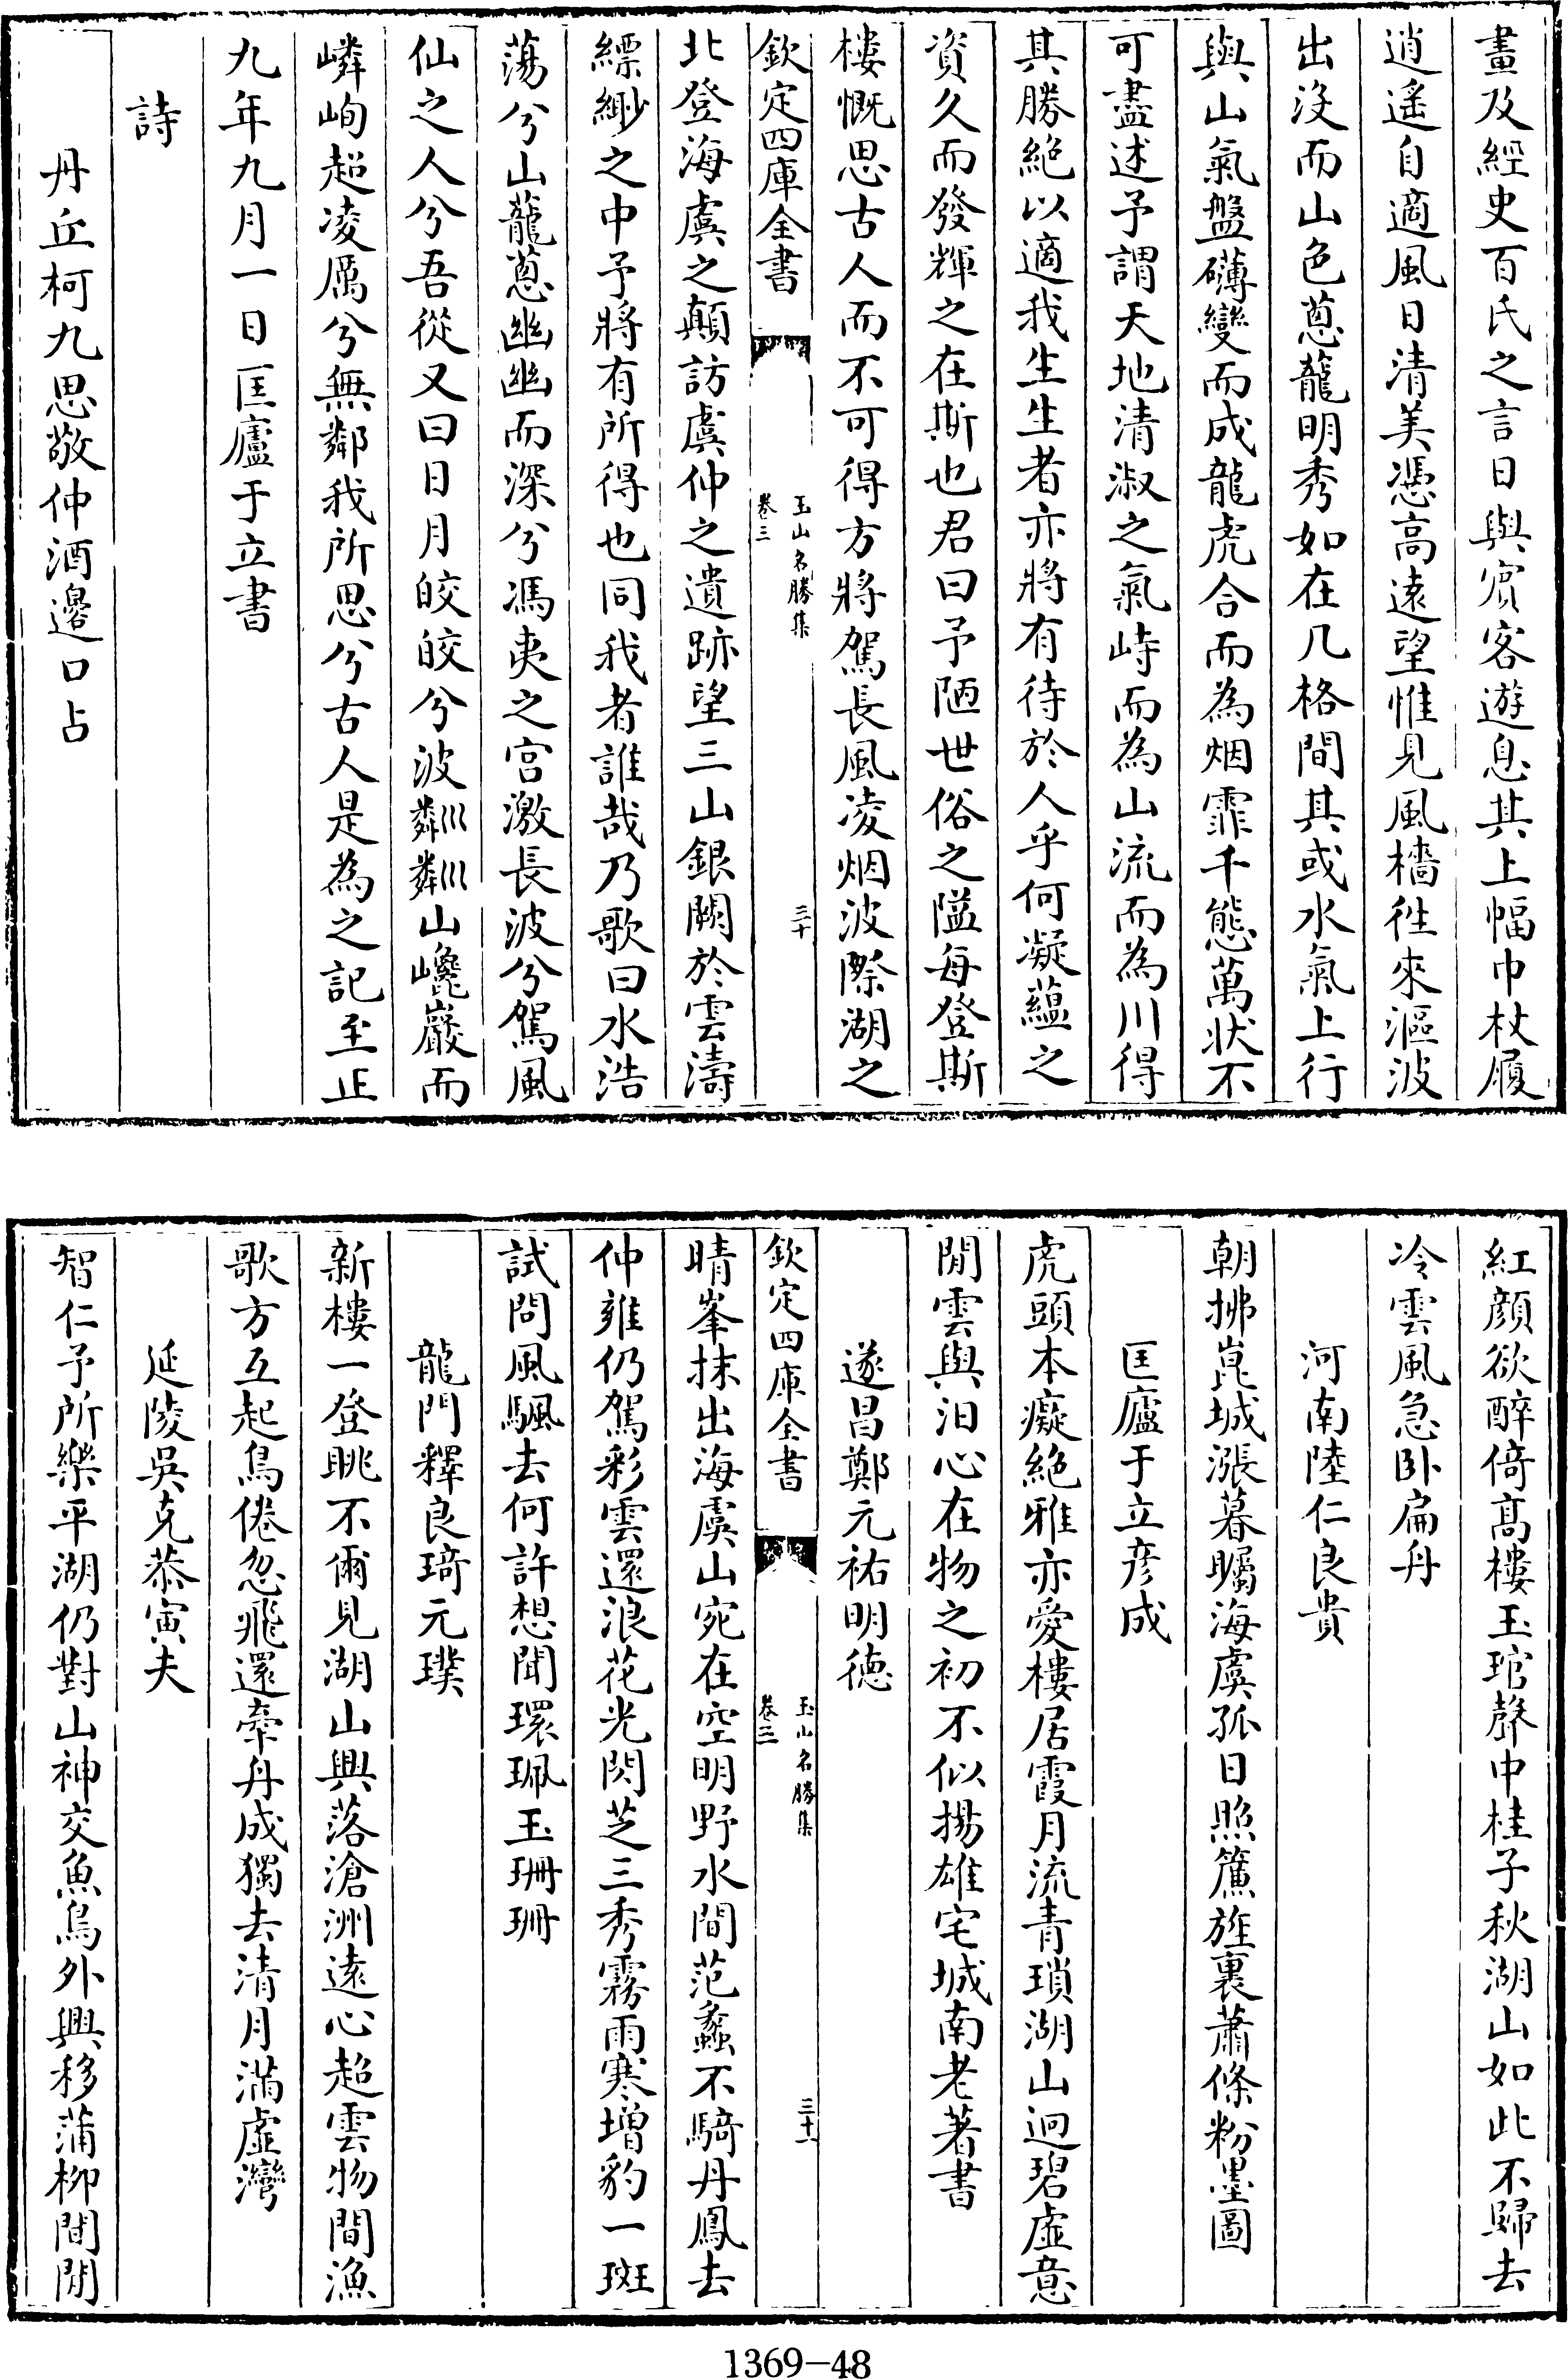 畫及經史百氏之言日與賔客遊息其上幅巾杖履
逍遙自適風日清美憑高遠望惟見風檣徃來漚波
出沒而山色蔥蘢明秀如在几格間其或水氣上行
與山氣盤礴變而成龍虎合而為烟霏千態萬狀不
可盡述予謂天地清淑之氣峙而為山流而為川得
其勝絶以適我生生者亦將有待於人乎何凝藴之
資久而發輝之在斯也君曰予陋世俗之隘每登斯
樓慨思古人而不可得方將駕長風凌烟波際湖之
欽定四庫全書
玉山名勝集
卷三
三十
北登海虞之顛訪虞仲之遺跡望三山銀闕於雲濤
縹緲之中予將有所得也同我者誰哉乃歌曰水浩
蕩兮山蘢蔥幽幽而深兮馮夷之宫激長波兮駕風
仙之人兮吾從又曰日月皎皎兮波粼粼山巉巖而
嶙峋超凌厲兮無鄰我所思兮古人是為之記至正
九年九月一日匡廬于立書
詩
丹丘柯九思敬仲酒邊口占
紅顔欲醉倚髙樓玉琯聲中桂子秋湖山如此不歸去
冷雲風急卧扁舟
河南陸仁良貴
朝拂崑城漲暮矚海虞孤日照簾旌裏蕭條粉墨圖
匡廬于立彦成
虎頭本癡絶雅亦愛樓居霞月流青瑣湖山迥碧虛意
閒雲與汨心在物之初不似揚雄宅城南老著書
遂昌鄭元祐明徳
欽定四庫全書
玉山名勝集
卷三
三十一
晴峯抹出海虞山宛在空明野水間范蠡不騎丹鳳去
仲雍仍駕彩雲還浪花光閃芝三秀霧雨寒增豹一斑
試問風騷去何許想聞環珮玉珊珊
龍門釋良琦元璞
新樓一登眺不爾見湖山興落滄洲遠心超雲物間漁
歌方互起鳥倦忽飛還牽舟成獨去清月滿虛灣
延陵吳克恭寅夫
智仁予所樂平湖仍對山神交魚鳥外興移蒲柳間閒
1369-48